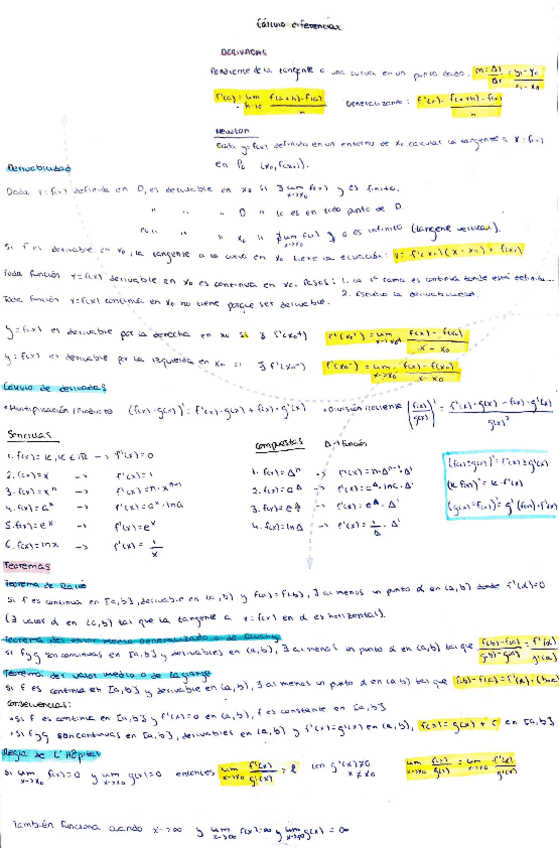 Cálculo diferencial
DERIVADAS
Pendiente de la tangente a una curva en un punto dado. m = Δy/Δx = y₁-y₀/x₁-x₀
f'(a) = lim h→0 f(a+h)-f(a)/h Generalizando: f'(x) = f(x+h)-f(x)/h
Newton
Dada y=f(x) definida en un entorno de x₀ calcular la tangente a y=f(x)
en P₀ (x₀, f(x₀)).
Derivabilidad
Dada y=f(x) definida en D, es derivable en x₀ si ∃ lim x→x₀ f(x) y es finita.
" " " D " lo es en todo punto de D.
" " x₀ " ∄ lim x→x₀ f(x) o es infinito (tangente vertical).
Si f es derivable en x₀, la tangente a la curva en x₀ tiene la ecuación: y = f'(x₀)(x-x₀) + f(x₀)
Toda función y=f(x) derivable en x₀ es continua en x₀. Pasos: 1. La rama es continua donde está definida...
Toda función y=f(x) continua en x₀ no tiene porque ser derivable. 2. Estudio la derivabilidad.
y=f(x) es derivable por la derecha en x₀ si ∃ f'(x₀⁺) f'(x₀⁺) = lim x→x₀⁺ f(x)-f(x₀)/x-x₀
y=f(x) es derivable por la izquierda en x₀ si ∃ f'(x₀⁻) f'(x₀⁻) = lim x→x₀⁻ f(x)-f(x₀)/x-x₀
Cálculo de derivadas
• Multiplicación/Producto (f(x)·g(x))' = f'(x)·g(x) + f(x)·g'(x) • División/cociente (f(x)/g(x))' = f'(x)·g(x) - f(x)·g'(x)/g(x)²
Sencillas
1. f(x)=K, K∈ℝ → f'(x)=0
2. f(x)=x → f'(x)=1
3. f(x)=xⁿ → f'(x)=n·xⁿ⁻¹
4. f(x)=aˣ → f'(x)=aˣ·lna
5. f(x)=eˣ → f'(x)=eˣ
6. f(x)=lnx → f'(x)=1/x
Compuestas Δ→función
1. f(x)=Δⁿ → f'(x)=n·Δⁿ⁻¹·Δ'
2. f(x)=a^Δ → f'(x)=a^Δ·lna·Δ'
3. f(x)=e^Δ → f'(x)=e^Δ·Δ'
4. f(x)=lnΔ → f'(x)=1/Δ·Δ'
(f(x)±g(x))' = f'(x)±g'(x)
(K f(x))' = K·f'(x)
(g(x)∘f(x))' = g'(f(x))·f'(x)
Teoremas
Teorema de Rolle
Si f es continua en [a,b], derivable en (a,b) y f(a)=f(b), ∃ al menos un punto α en (a,b) donde f'(α)=0
(∃ valor α en (a,b) tal que la tangente a y=f(x) en α es horizontal).
Teorema del valor medio generalizado o de Cauchy
Si f y g son continuas en [a,b] y derivables en (a,b), ∃ al menos un punto α en (a,b) tal que f(b)-f(a)/g(b)-g(a) = f'(α)/g'(α)
Teorema del valor medio o de Lagrange
Si f es continua en [a,b] y derivable en (a,b), ∃ al menos un punto α en (a,b) tal que f(b)-f(a)=f'(α)·(b-a)
Consecuencias:
• Si f es continua en [a,b] y f'(x)=0 en (a,b), f es constante en [a,b]
• Si f y g son continuas en [a,b], derivables en (a,b) y f'(x)=g'(x) en (a,b), f(x)=g(x)+C en [a,b]
Regla de L'Hôpital
Si lim x→x₀ f(x)=0 y lim x→x₀ g(x)=0 entonces lim x→x₀ f'(x)/g'(x) = l con g'(x)≠0 x≠x₀ lim x→x₀ f(x)/g(x) = lim x→x₀ f'(x)/g'(x)
También funciona cuando x→∞ y lim x→∞ f(x)=∞ y lim x→∞ g(x)=∞